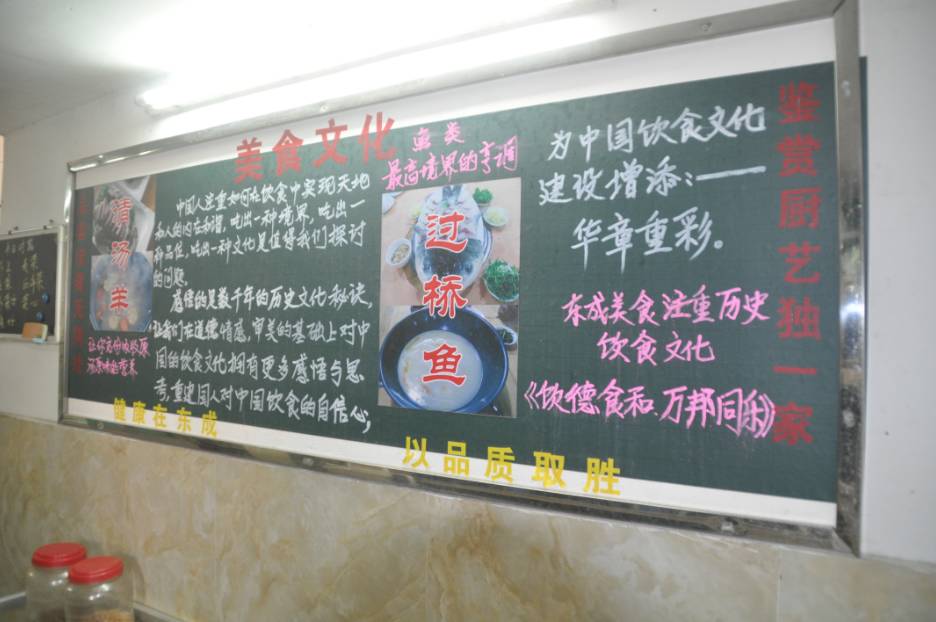 美食文化
清汤羊
中国人注重如何在饮食中实现天地
和人的内在和谐,吃出一种境界,吃出一
种品位,吃出一种文化是值得我们探讨
的问题。
感悟的是数千年的历史文化秘诀,
让我们在道德情感,审美的基础上对中
国的饮食文化拥有更多感悟与思
考,重建国人对中国饮食的自信心,
让你充份吸收原
鱼类
最高境界的亨调
过桥鱼
为中国饮食文化
建设增添:——
华章重彩。
东成美食注重历史
饮食文化
《饮德食和、万邦同乐》
鉴赏厨艺独一家
健康在东成
以品质取胜